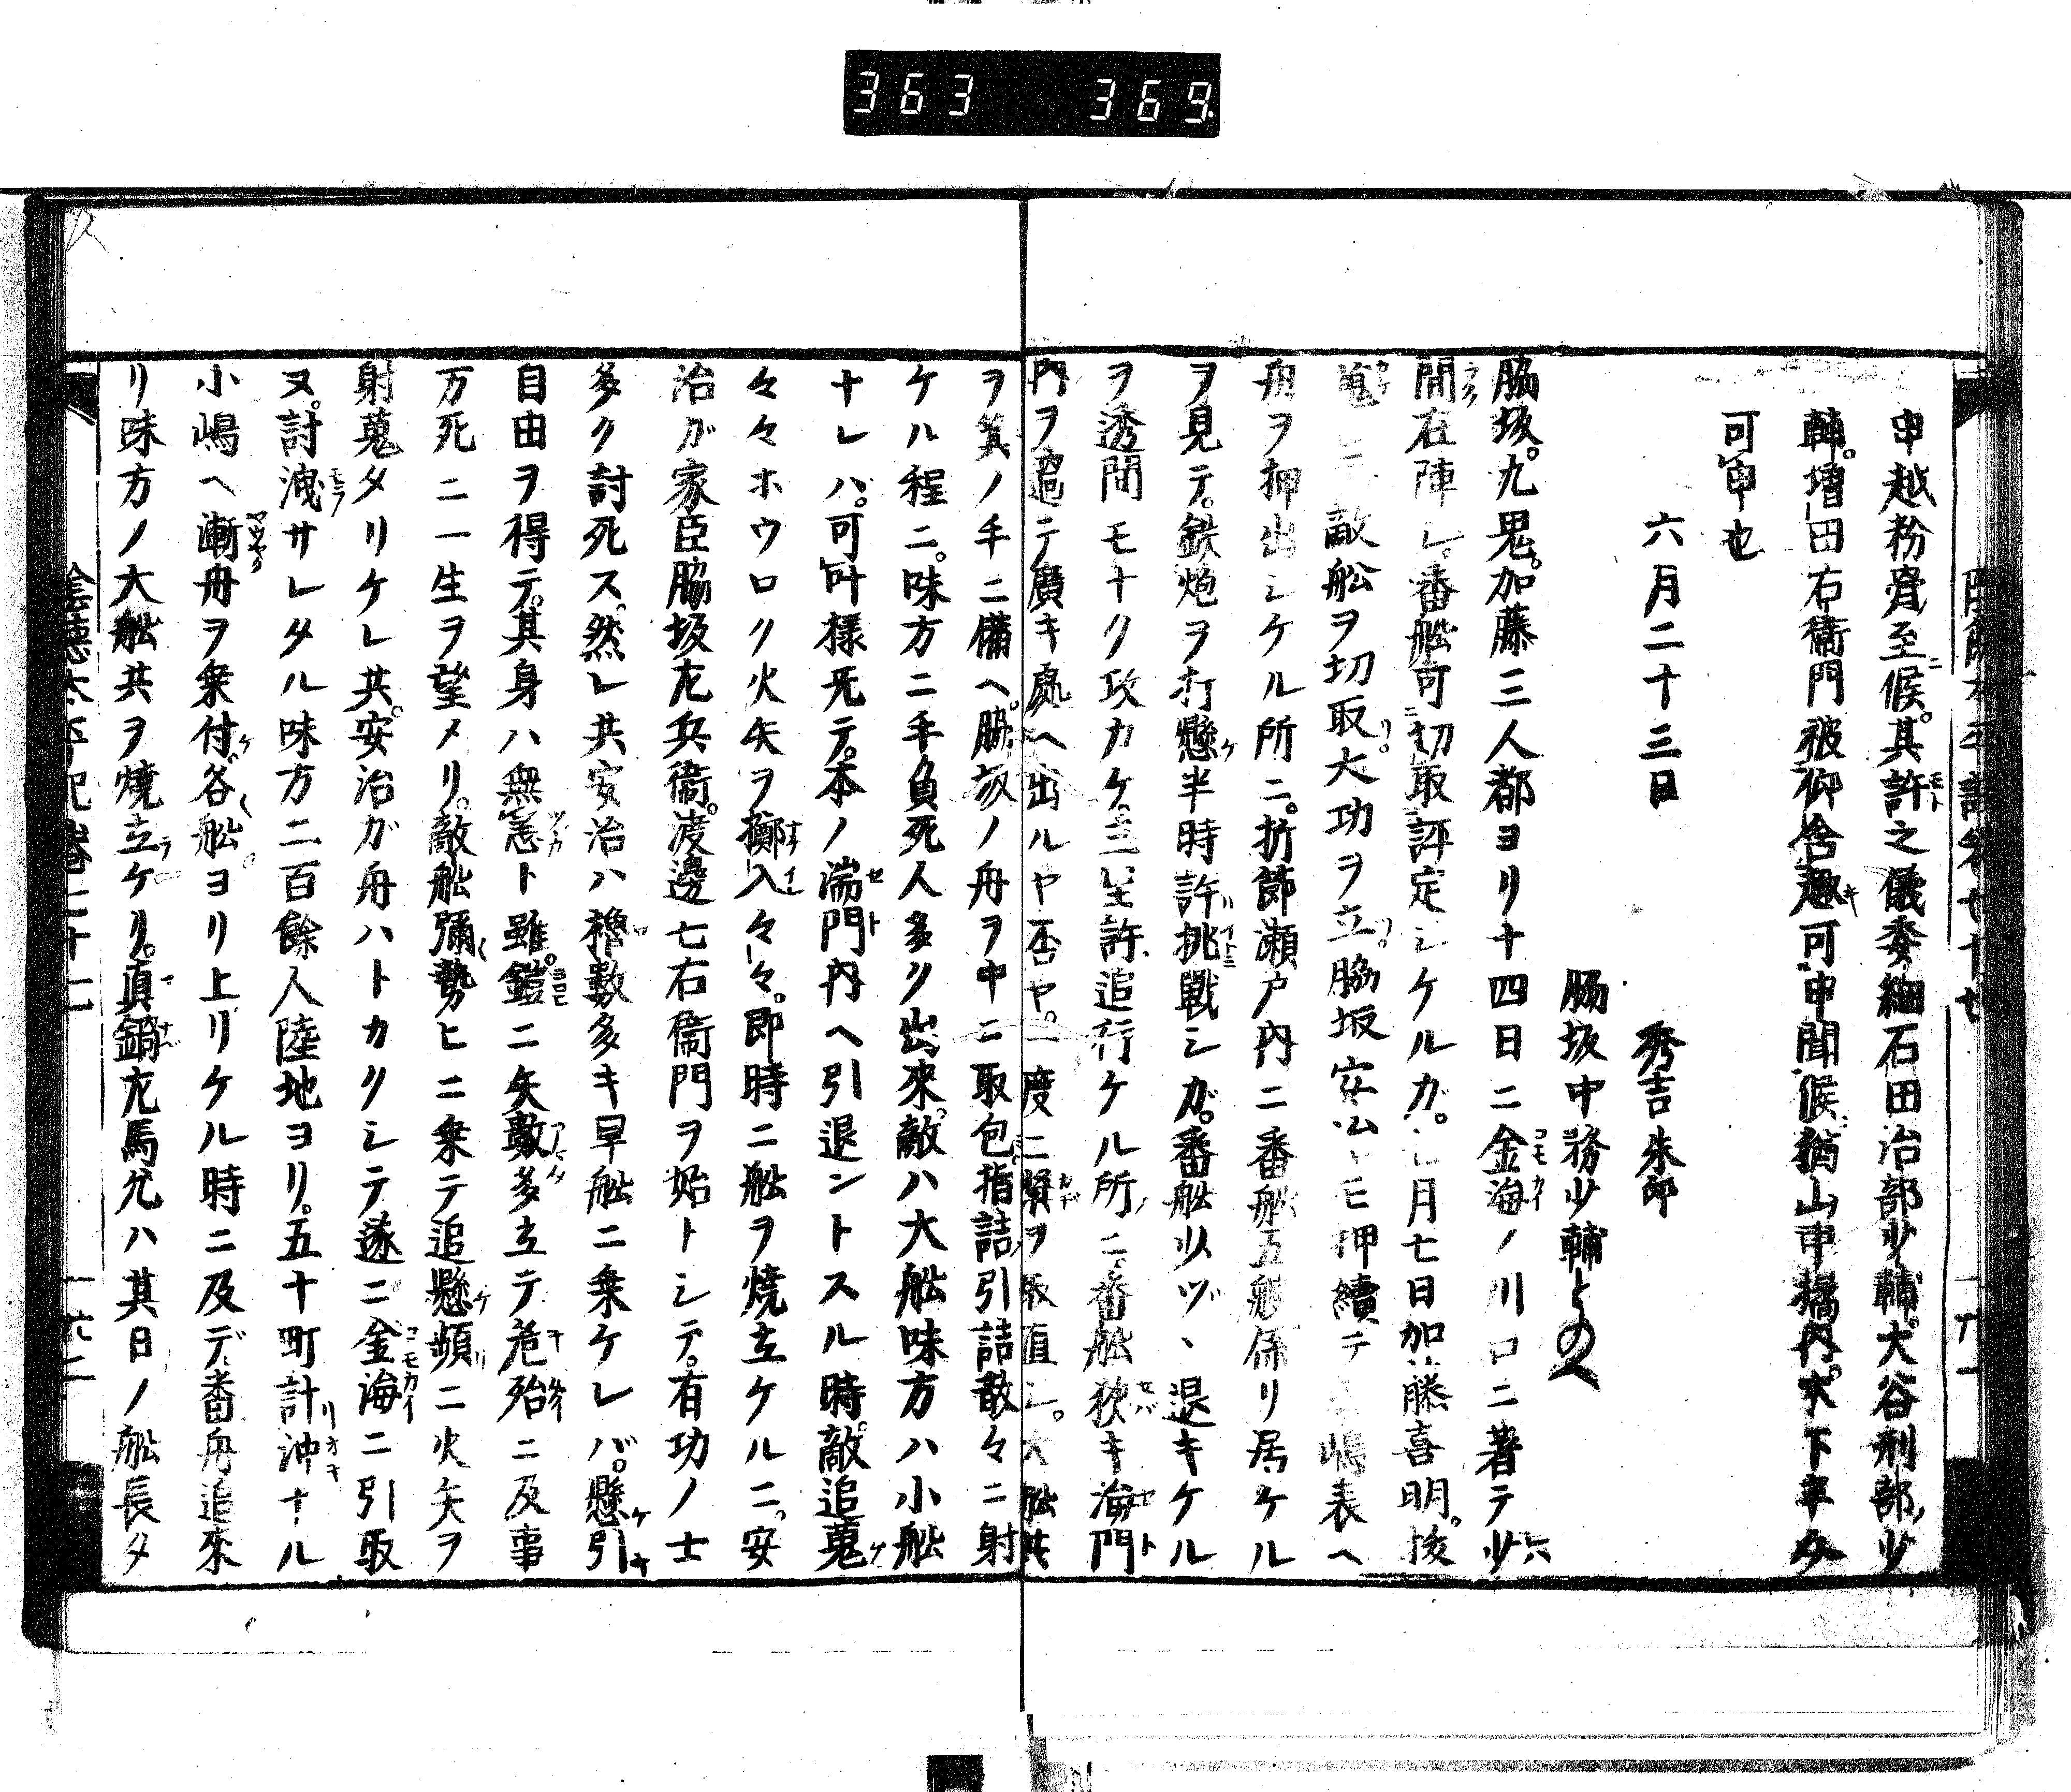 363 369
申越粉骨至候。其許之儀委細石田治部少輔。大谷刑部少
輔。増田右衛門被仰含趣可申聞候。猶山中橘内。木下半タ
可申也
六月二十三日
秀吉朱印
脇坂中務少輔とのへ
脇坂。九鬼。加藤三人都ヨリ十四日ニ金海ノ川口ニ著テ少
間在陣シ。番舩可切取評定シケルガ。七月七日加藤喜明。後
ニ敵舩ヲ切取大功ヲ立。脇坂安治モ押續テ嶋表ヘ
舟ヲ押出シケル所ニ。折節瀬戸内ニ番舩五艘係リ居ケル
ヲ見テ。鉄炮ヲ打懸半時許挑戰シガ。番舩少ヅヽ退キケル
ヲ透間モナク攻カケ。三里許追行ケル所ニ。番舩狹キ海門
内ヲ過テ廣キ處ヘ出ルヤ否ヤ。一度ニ檝ヲ取直シ。大舩共
ヲ箕ノ手ニ備ヘ。脇坂ノ舟ヲ中ニ取包。指詰引詰散々ニ射
ケル程ニ。味方ニ手負死人多ク出來。敵ハ大舩味方ハ小舩
ナレハ。可叶様无テ。本ノ湍門内ヘ引退ントスル時。敵追蒐
々々ホウロク火矢ヲ擲入々々。即時ニ舩ヲ焼立ケルニ。安
治ガ家臣脇坂尤兵衞。渡邊七右衞門ヲ始トシテ。有功ノ士
多ク討死ス。然レ共安治ハ櫓數多キ早舩ニ乗ケレバ。懸引
自由ヲ得テ。其身ハ無恙ト雖。鎧ニ矢數多立テ危殆ニ及事
万死ニ一生ヲ望メリ。敵舩彌勢ヒニ乗テ追懸頻ニ火矢ヲ
射蒐タリケレ共。安治ガ舟ハトカクシテ遂ニ金海ニ引取
ヌ。討洩サレタル味方二百餘人陸地ヨリ。五十町計沖ナル
小嶋ヘ漸舟ヲ乗付。各舩ヨリ上リケル時ニ及デ番舟追來
リ味方ノ大舩共ヲ焼立ケリ。真鍋尤馬允ハ其日ノ舩長タ
陰德太平記卷七十七
一六二